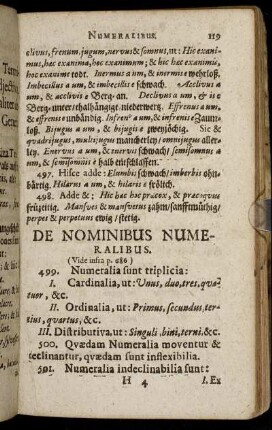 NUMERALIBUS. 119
clivus, frenum, jugum, nervus & somnus, ut: Hic exani-
mus, hæc exanima, hoc exanimum; & hic hæc exanimis,
hoc exanime todt. Inermus a um, & inermis e wehrloß.
Imbecillus a um, & imbecillis e schwach. Acclivus a
um, & acclivis e Berg-an. Declivus a um, & is e
Berg-unter/thalhängig/niederwerts. Effrenus a um,
& effrenis e unbändig. Infrenus a um, & infrenis e Zaum-
loß. Bijugus a um, & bijugis e zweyjöchig. Sic &
quadrijugus, multijugus mancherley/ omnijugus aller-
ley. Enervus a um, & enervis e schwach/ semisomnus a
um, & semisomnis e halb entschlaffen.
497. Hisce adde: Elumbis schwach/ imberbis ohn-
bärtig. Hilarus a um, & hilaris e frölich.
498. Adde &: Hic hæc hoc præcox, & præcoquus
frühzeitig. Mansves & mansvetus zahm/ sanfftmüthig/
perpes & perpetuus ewig/ stetig.
DE NOMINIBUS NUME-
RALIBUS.
(Vide infra p. 686)
499. Numeralia sunt triplicia:
I. Cardinalia, ut: Unus, duo, tres, qua-
tuor, &c.
II. Ordinalia, ut: Primus, secundus, ter-
tius, quartus, &c.
III. Distributiva, ut: Singuli, bini, terni, &c.
500. Quædam Numeralia moventur &
declinantur, quædam sunt inflexibilia.
501. Numeralia indeclinabilia sunt:
H 4 I. Ex